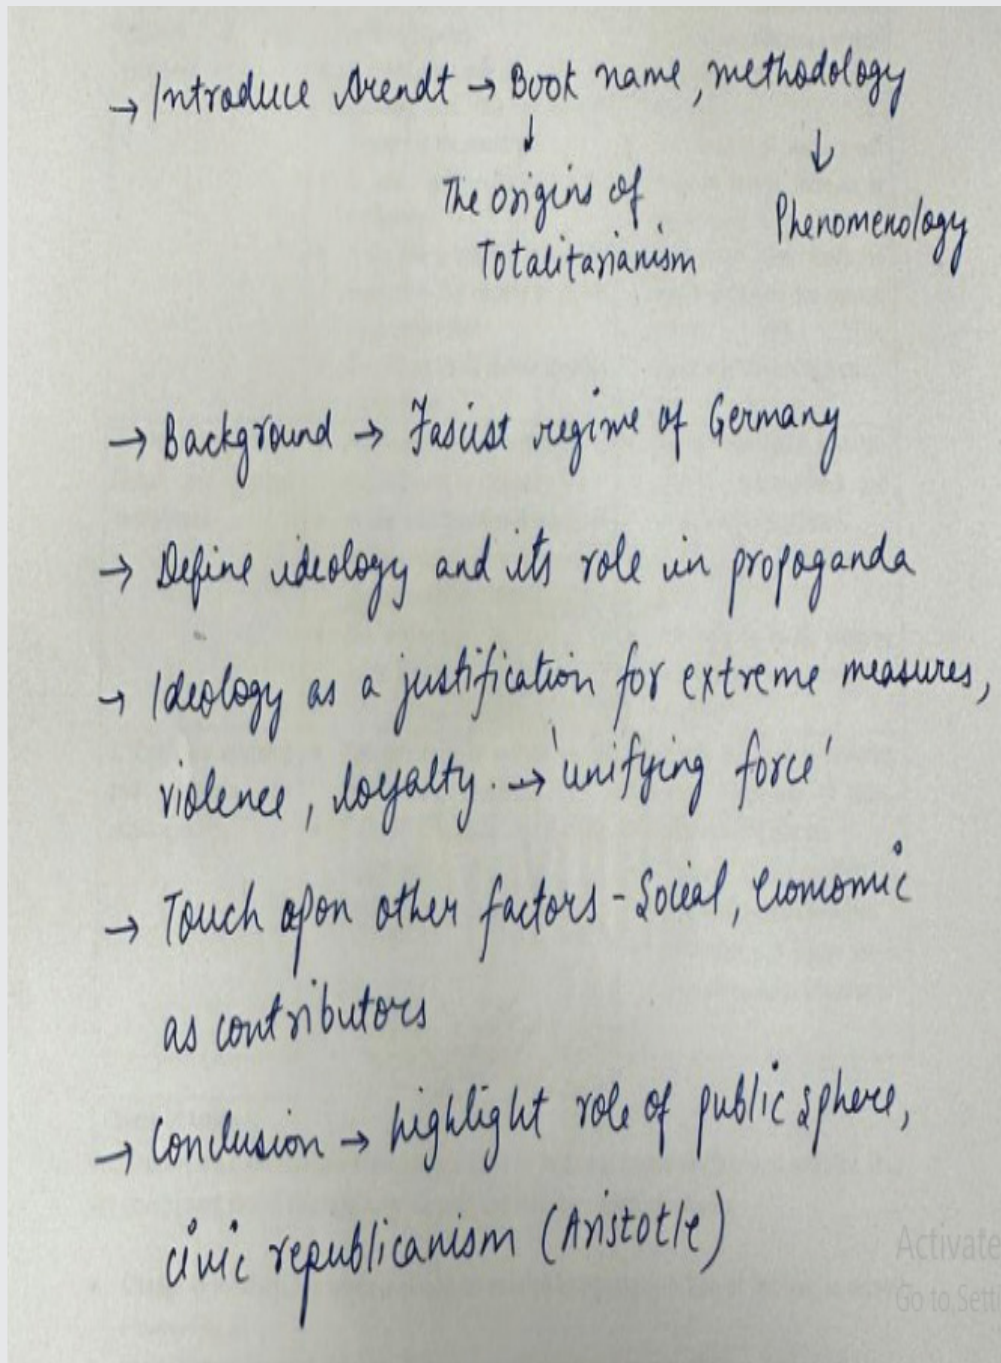 → Introduce Arendt → Book name, methodology
↓ ↓
The Origins of
Totalitarianism
Phenomenology
→ Background → Fascist regime of Germany
→ Define ideology and its role in propaganda
→ Ideology as a justification for extreme measures,
violence, loyalty. → 'unifying force'
→ Touch upon other factors - Social, economic
as contributors
→ Conclusion → highlight role of public sphere,
civic republicanism (Aristotle)
Activate
Go to Setti